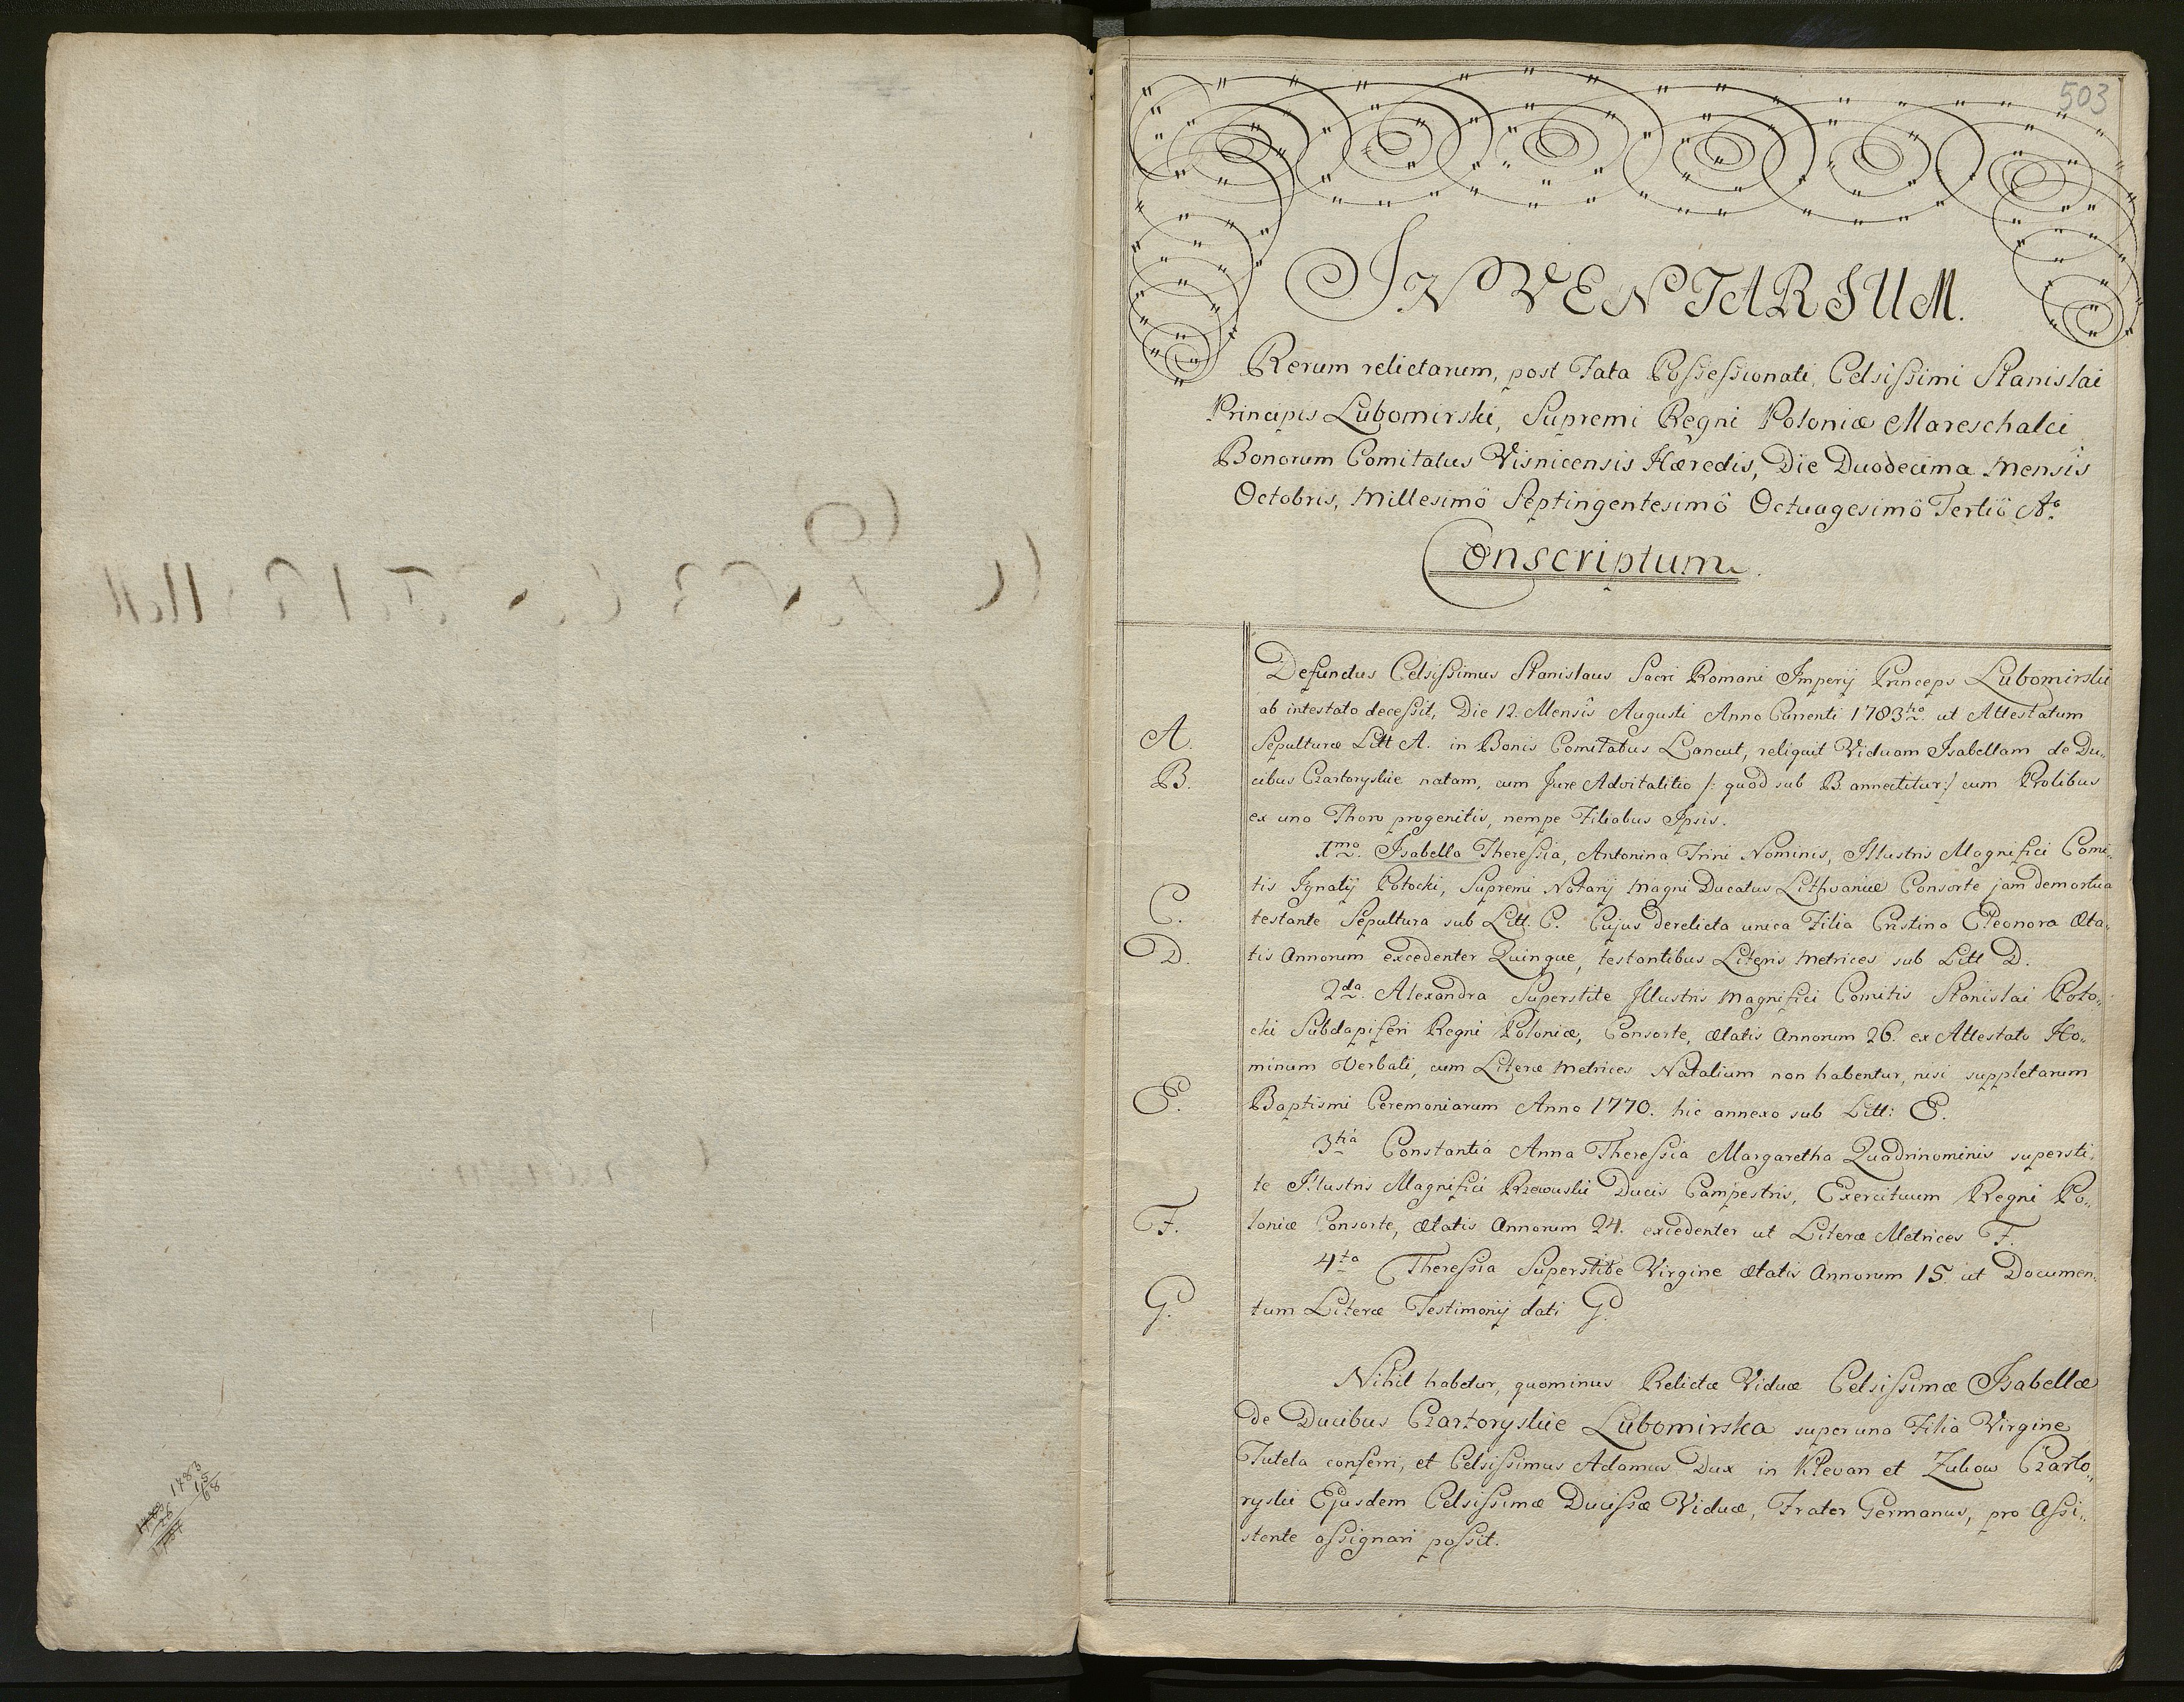 1783
15
68
1783
26
1757
503
INVENTARIUM.
Rerum relictarum, post Fata Possessionati, Celsissimi Stanislai
Principis Lubomirski, Supremi Regni Poloniæ Mareschalci
Bonorum Comitatus Visnicensis Hæredis, Die Duodecima Mensis
Octobris, Millesimô Septingentesimô Octuagesimô Tertiô Aô
Conscriptum.
Defunctus Celsissimus Stanislaus Sacri Romani Imperij Princeps Lubomirski
ab intestato decessit, Die 12. Mensis Augusti Anno Currenti 1783tio ut Attestatum
A. Sepulturæ Litt A. in Bonis Comitatus Lancut, reliquit Viduam Isabellam de Du„
B. cibus Czartoryskie natam, cum Jure Advitalitio /: quod sub B. annectitur:/ cum Prolibus
ex uno Thoro progenitis, nempe Filiabus Ipsis.
1mo. Isabella Theressia, Antonina Trini Nominis, Illustris Magnifici Comi„
tis Ignatij Potocki, Supremi Notarij Magni Ducatus Lithvaniæ Consorte jam demortua
C. testante Sepultura sub Litt. C. Cujus derelicta unica Filia Cristina Eleonora Æta„
D. tis Annorum excedenter Quinque, testantibus Literis Metrices sub Litt D.
2da. Alexandra Superstite Illustris Magnifici Comitis Stanislai Poto„
cki Subdapiferi Regni Poloniæ, Consorte, Ætatis Annorum 26. ex Attestato Ho„
minum Verbali, cum Literæ Metrices Natalium non habentur, nisi suppletarum
E. Baptismi Ceremoniarum Anno 1770. hic annexo sub Litt: E.
3tia Constantia Anna Theressia Margaretha Quadrinominis supersti„
te Illustris Magnifici Rzewuski Ducis Campestris, Exercituum Regni Po„
F. loniæ Consorte, Ætatis Annorum 24. excedenter ut Literæ Metrices F.
4ta Theressia Superstite Virgine Ætatis Annorum 15. ut Documen„
G. tum Literæ Testimonij dati G.
Nihil habetur, quominus Relictæ Viduæ Celsissimæ Isabellæ
de Ducibus Czartoryskie Lubomirska super una Filia Virgine
Tutela conferri, et Celsissimus Adamus Dux in Klevan et Zukow Czarto„
ryski Ejusdem Celsissimæ Ducissæ Viduæ, Frater Germanus, pro Assi„
stente assignari possit.